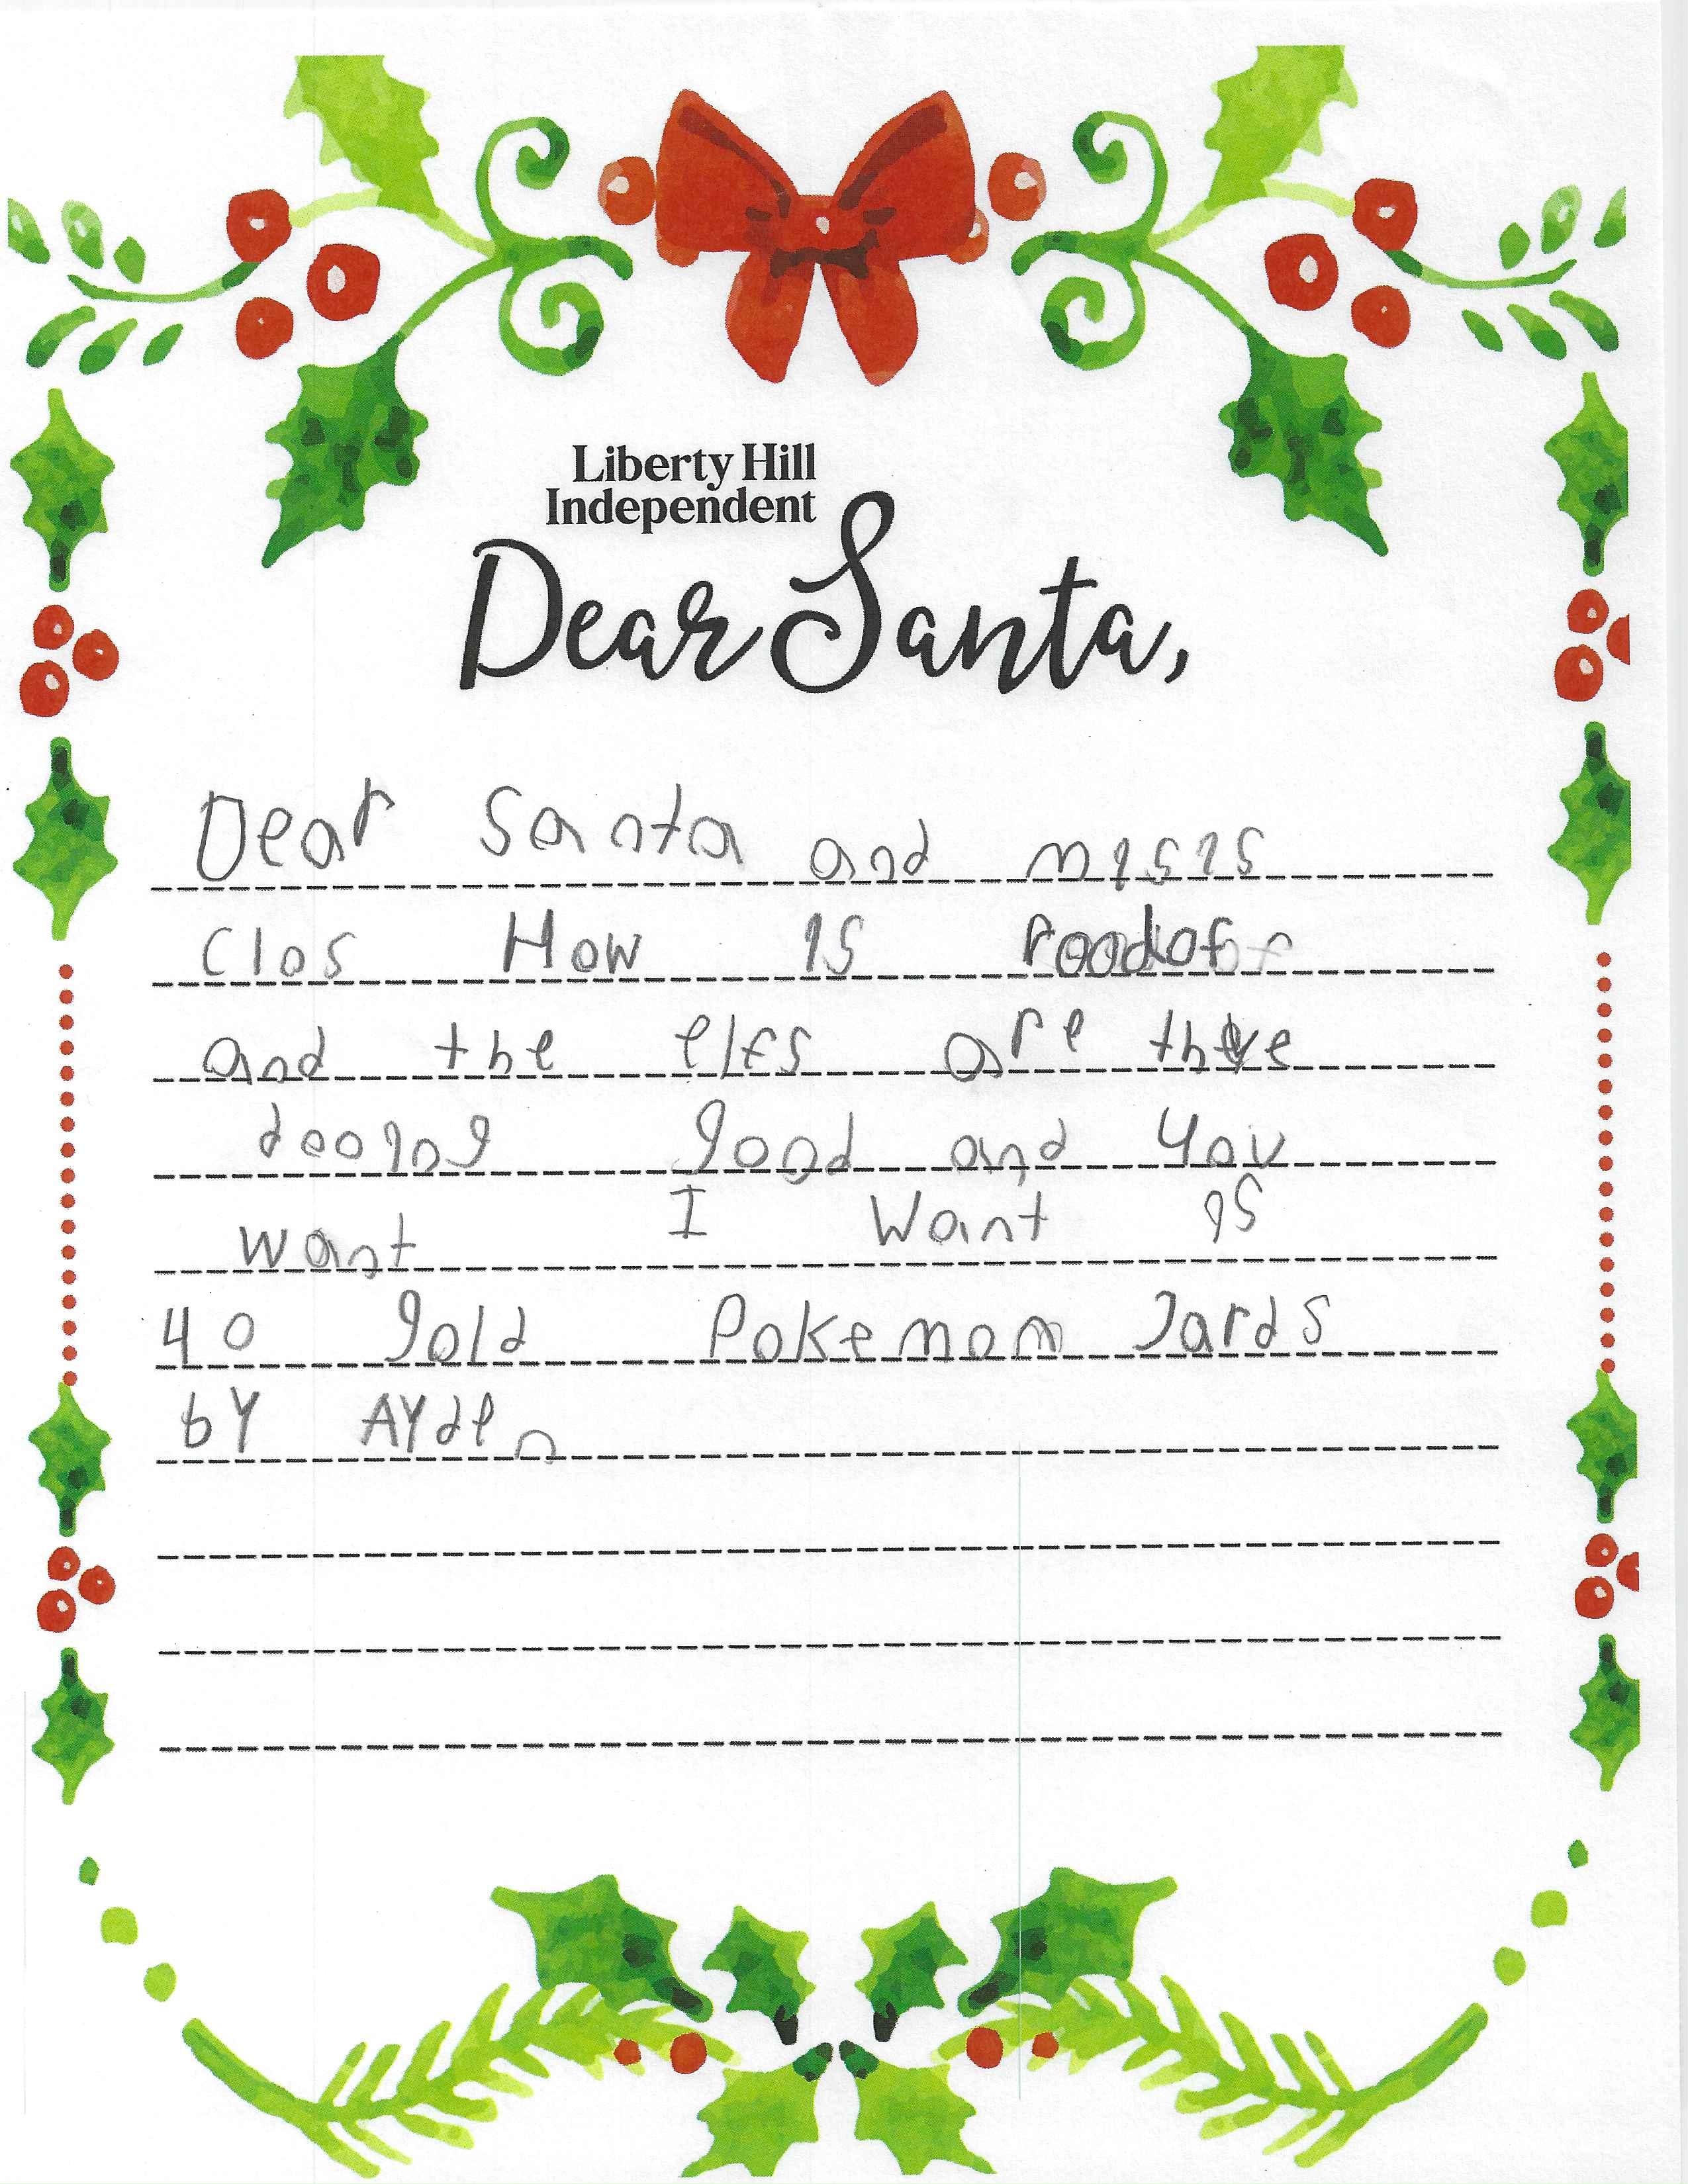 Liberty Hill
Independent
Dear Santa,
Dear Santa and misis
Clos How is roodof
and the elfs are theve
dooing good and you
want I Want is
40 gold Pokemom Jards
by AYden